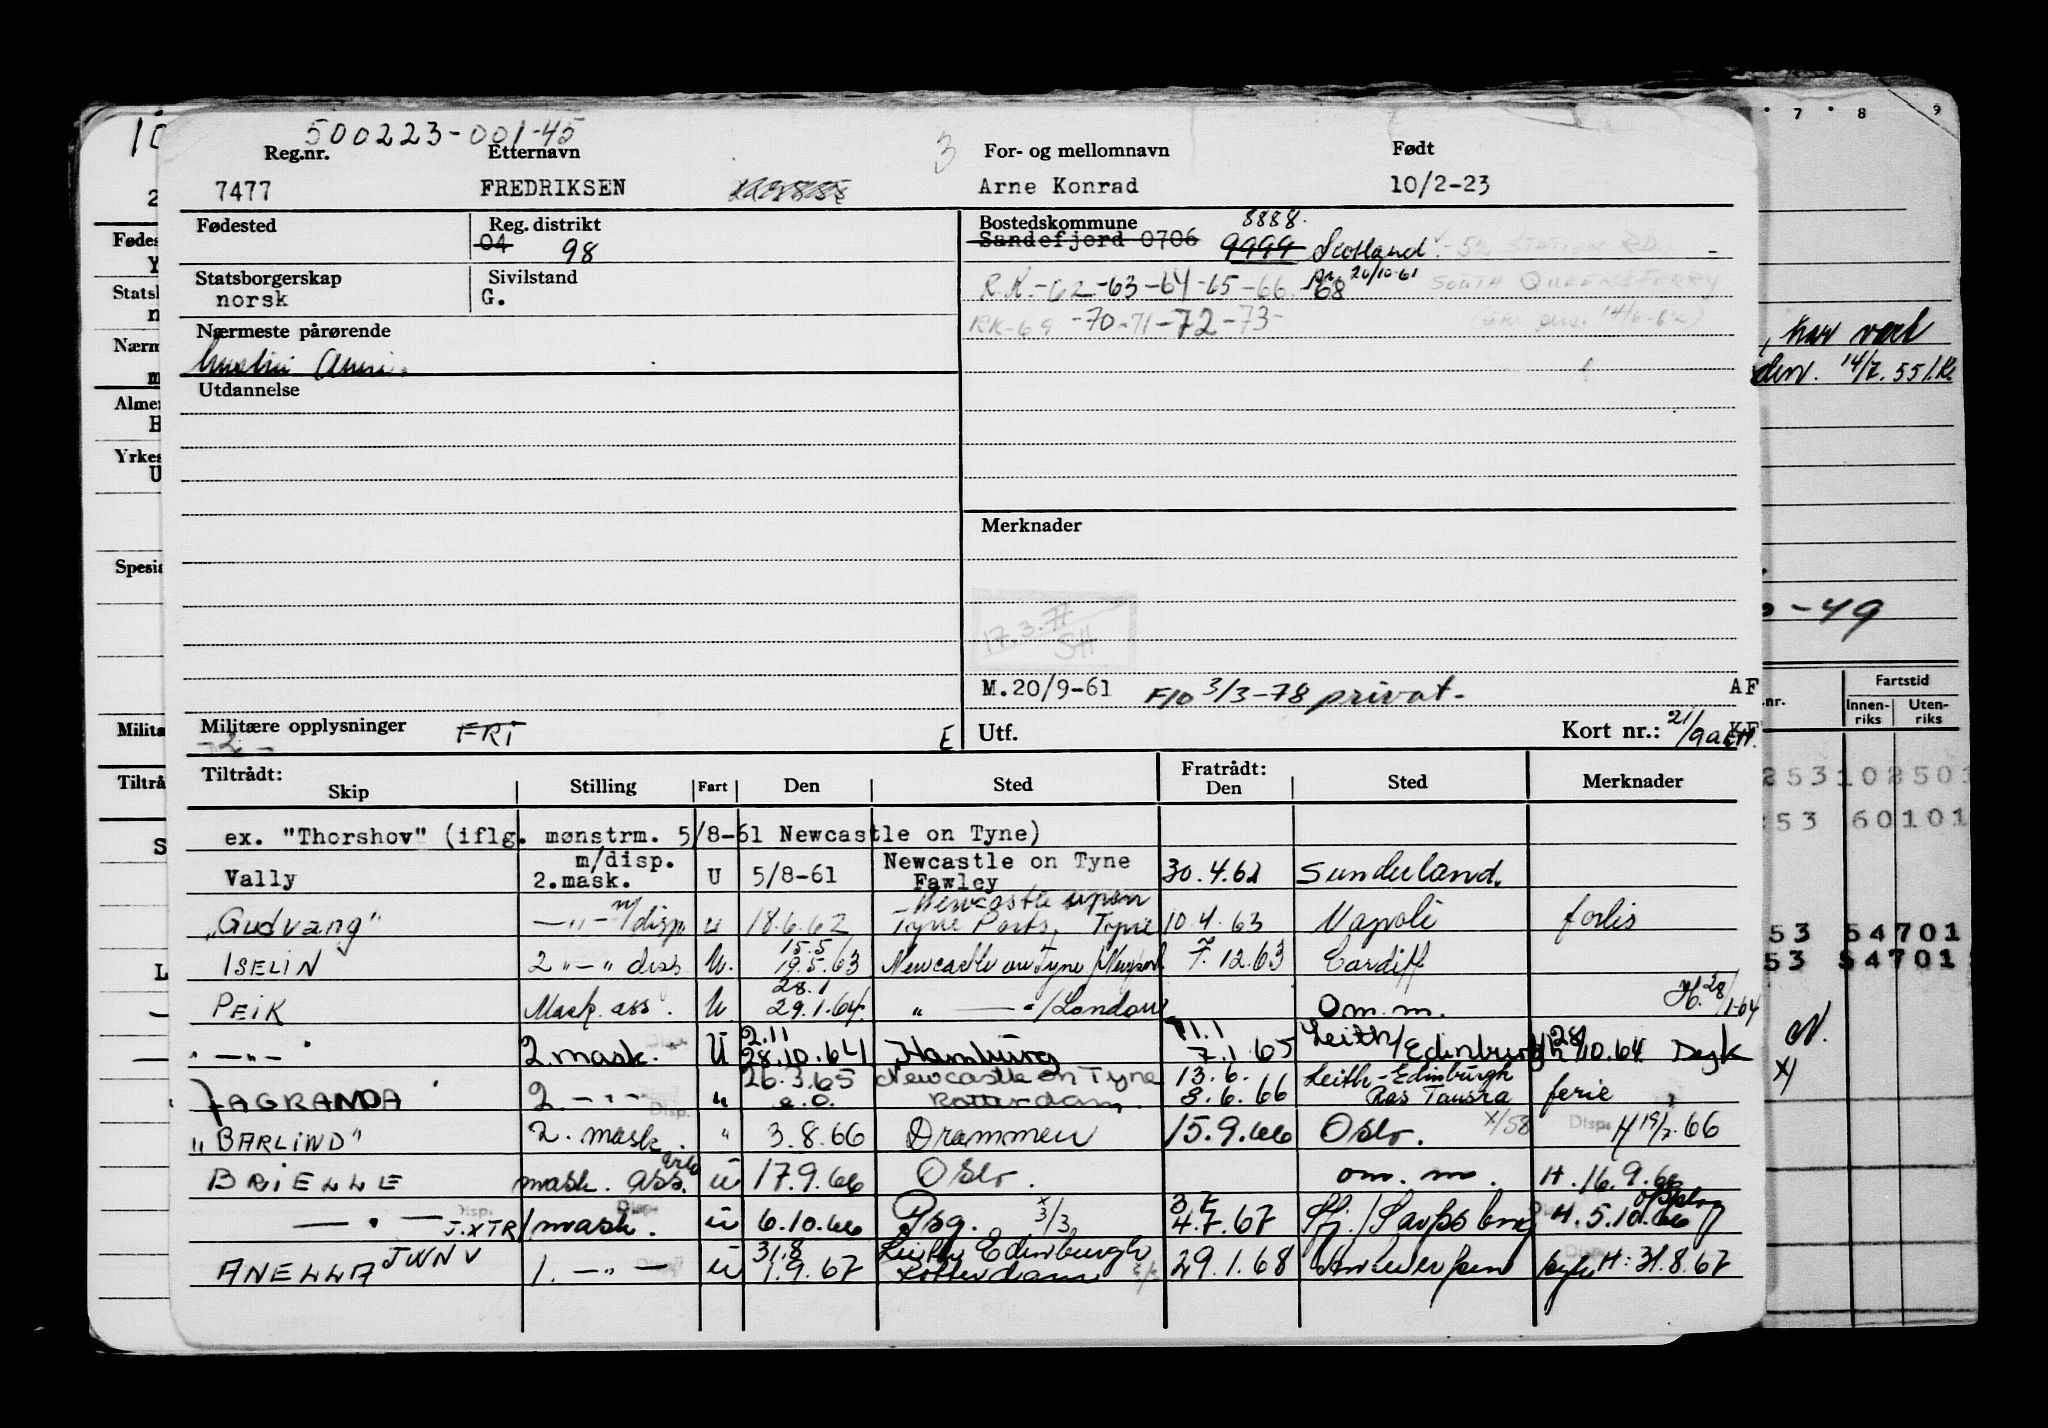 500223-001-45
Reg.nr. Etternavn 3 For- og mellomnavn Født
7477 FREDRIKSEN Arne Konrad 10/2-23
Fødested Reg. distrikt Bostedskommune 8888.
04 98 Sandefjord 0706 9999 Scotland - STATION RD.
Statsborgerskap Sivilstand 20/10-61
norsk G. R.K.-62-63-64-65-66-68 SOUTH QUEENSFERRY
Nærmeste pårørende RK-69-70-71-72-73- 14/6-62)
Utdannelse
Merknader
17.3.71
SH
M.20/9-61 F/O 3/3-78 privat. AF
Militære opplysninger FRI E Utf. Kort nr.: 21/9
-2-
Tiltrådt: Fratrådt:
Skip Stilling Fart Den Sted Den Sted Merknader
ex. "Thorshov" (iflg. mønstrm. 5/8-61 Newcastle on Tyne)
m/disp. Newcastle on Tyne
Vally 2.mask. U 5/8-61 Fawley 30.4.62 Sunderland.
Newcastle upon
"Gudvang" —"— m/disp. u 18.6.62 Tyne Ports, Tyne 10.4.63 Napoli forlis
15.5
ISELIN 2 "—" disp. U. 19.5.63 Newcastle on Tyne/Newport 7.12.63 Cardiff
28.1
PEIK Mask. ass. U. 29.1.64. " —— " /London om.m. H. 28/1-64
2.11 11.1 Leith/
"—"—" 2.mask. U 28.10.64 Hamburg 7.1.65 Edinburgh H 28/10.64 Dagk
26.3.65 Newcastle on Tyne 13.6. Leith-Edinburgh
FAGRANDA 2. —"— " e.o. Rotterdam. 8.6.66 Ras Tanura ferie
"BARLIND" 2. mask. " 3.8.66 Drammen 15.9.66 Oslo. X/58 Disp. H 19/7.66
BRIELLE mask. ass. u 17.9.66 Oslo. om. m. H. 16.9.66
— " — J.XTR 1 mask. u 6.10.66 Psg. X 3/3 4.7.67 Sfj./Sarpsborg H. 5.10.66
31.8 Leith Edinburgh
ANELLA JWNV 1. —"— u 1.9.67 Rotterdam 29.1.68 Antwerpen H: 31.8.67
10
Fødes
Nærm
Almen
Yrkes
Spesia
Tiltrå
7 8 9
, har vært
14/7.55
-49
Fartstid
nr. Innen-riks Uten-riks
253 102501
53 60101
53 54701
53 54701